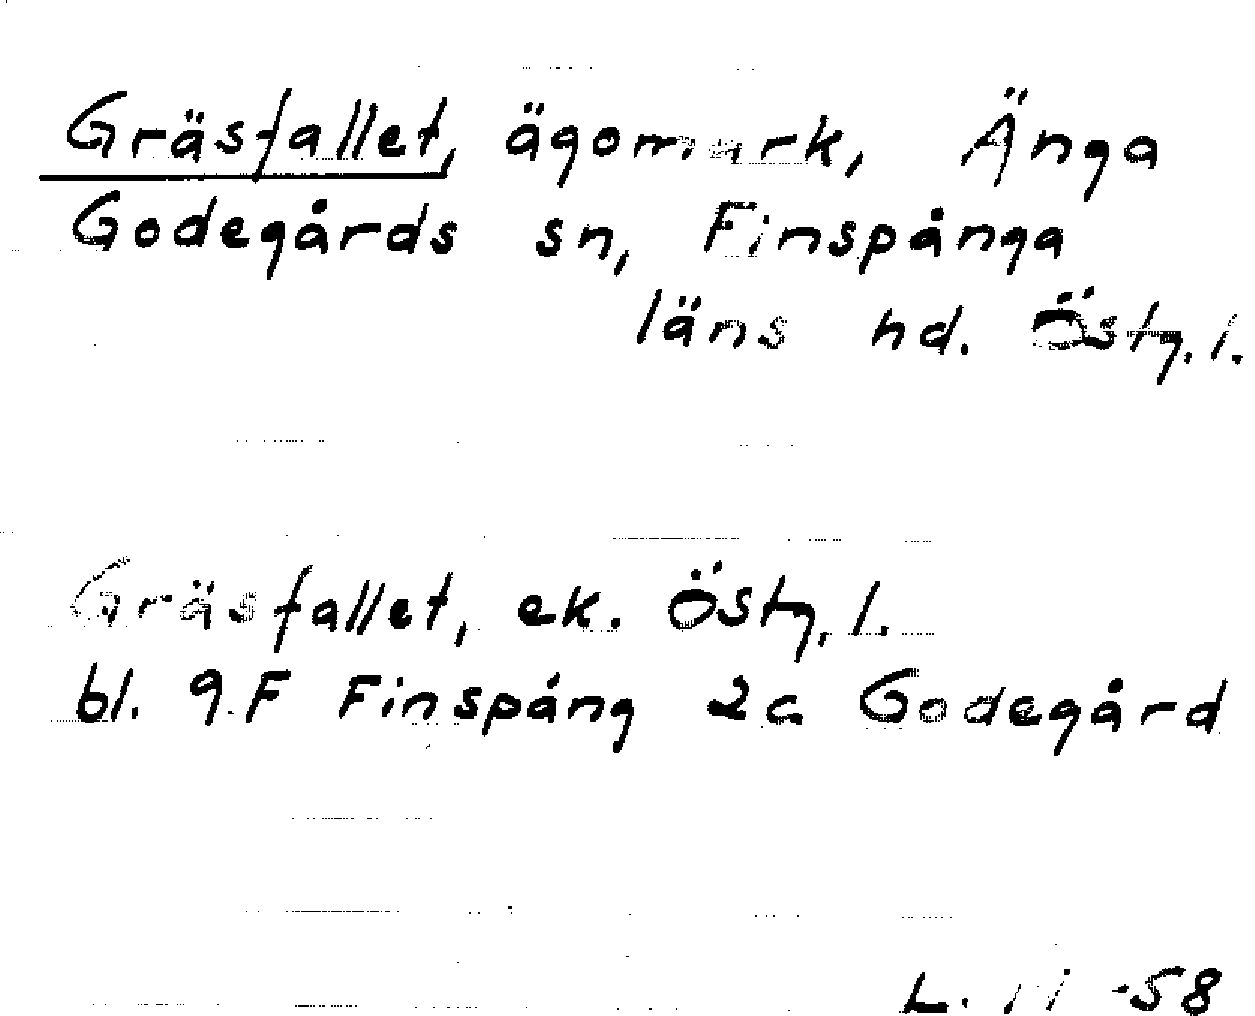 Gräsfallet, ägomark, Änga
Godegårds sn, Finspånga
läns hd. Östg. l.
Gräsfallet, ek. Östg. l.
bl. 9F Finspång 2c Godegård
L. -58